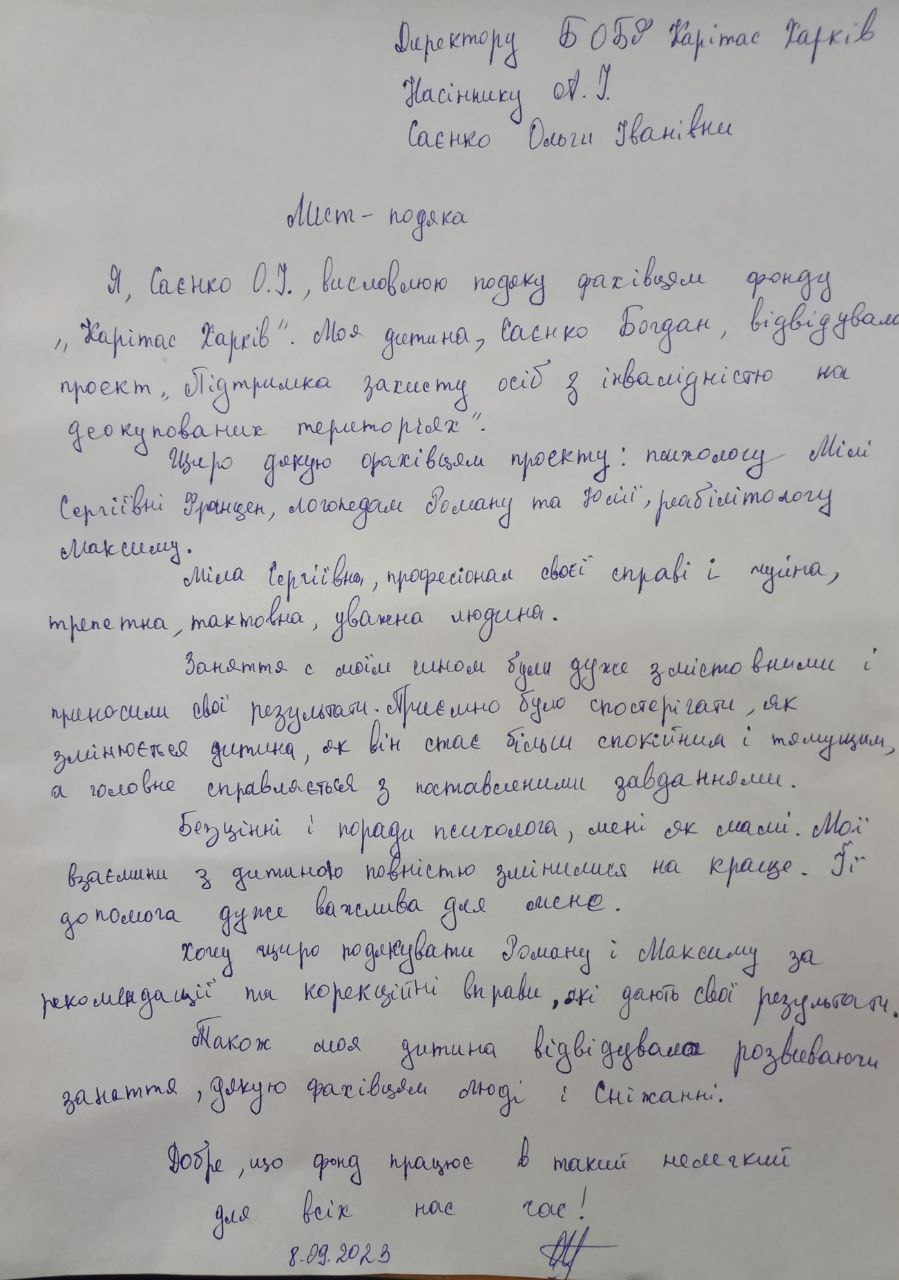 Директору БОБФ Карітас Харків
Насіннику А. І.
Саєнко Ольги Іванівни
Лист - подяка
Я, Саєнко О.І., висловлюю подяку фахівцям фонду
„Карітас Харків". Моя дитина, Саєнко Богдан, відвідувала
проєкт „Підтримка захисту осіб з інвалідністю на
деокупованих територіях".
Щиро дякую фахівцям проєкту: психологу Мілі
Сергіївні Францен, логопедам Роману та Юлії, реабілітологу
Максиму.
Міла Сергіївна, професіонал своєї справі і чуйна,
трепетна, тактовна, уважна людина.
Заняття с моїм сином були дуже змістовними і
приносили свої результати. Приємно було спостерігати, як
змінюється дитина, як він стає більш спокійним і тямущим,
а головне справляється з поставленими завданнями.
Безцінні і поради психолога, мені як мамі. Мої
взаємини з дитиною повністю змінилися на краще. Її
допомога дуже важлива для мене.
Хочу щиро подякувати Роману і Максиму за
рекомендації та корекційні вправи, які дають свої результати.
Також моя дитина відвідувала розвиваючи
заняття, дякую фахівцям Люді і Сніжанні.
Добре, що фонд працює в такий нелегкий
для всіх нас час!
8.09.2023